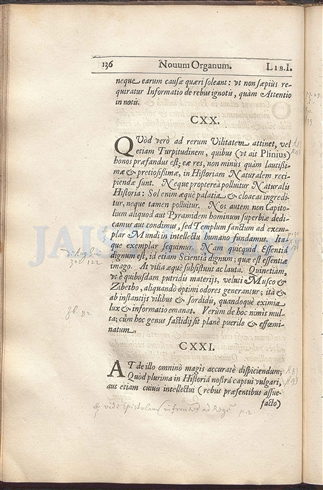 136 Novum Organum. LIB. I.
neque earum causæ quæri soleant: vt non sæpiùs re-
quiratur Informatio de rebus ignotis, quàm Attentio
in notis.
CXX.
QVòd verò ad rerum Vilitatem attinet, vel
etiam Turpitudinem, quibus (vt ait Plinius)
honos præfandus est; eæ res, non minùs quàm lautissi-
mæ & pretiosissimæ, in Historiam Naturalem reci-
piendæ sunt. Neque propterea polluitur Naturalis
Historia: Sol enim æquè palatia & cloacas ingredi-
tur, neque tamen polluitur. Nos autem non Capito-
lium aliquod aut Pyramidem hominum superbiæ dedi-
camus aut condimus, sed Templum sanctum ad exem-
plar Mundi in intellectu humano fundamus. Ita-
que exemplar sequimur. Nam quicquid Essentiâ
dignum est, id etiam Scientiâ dignum; quæ est essentiæ
imago. At vilia æquè subsistunt ac lauta. Quinetiam,
vt è quibusdam putridis materiis, veluti Musco &
Zibetho, aliquando optimi odores generantur; ita &
ab instantiis vilibus & sordidis, quandoque eximia
lux & informatio emanat. Verùm de hoc nimis mul-
ta; cùm hoc genus fastidij sit planè puerile & effœmi-
natum.
CXXI.
AT de illo omninò magis accuratè dispiciendum;
Quòd plurima in Historia nostra captui vulgari,
aut etiam cuiuis intellectui (rebus præsentibus assue-
facto)